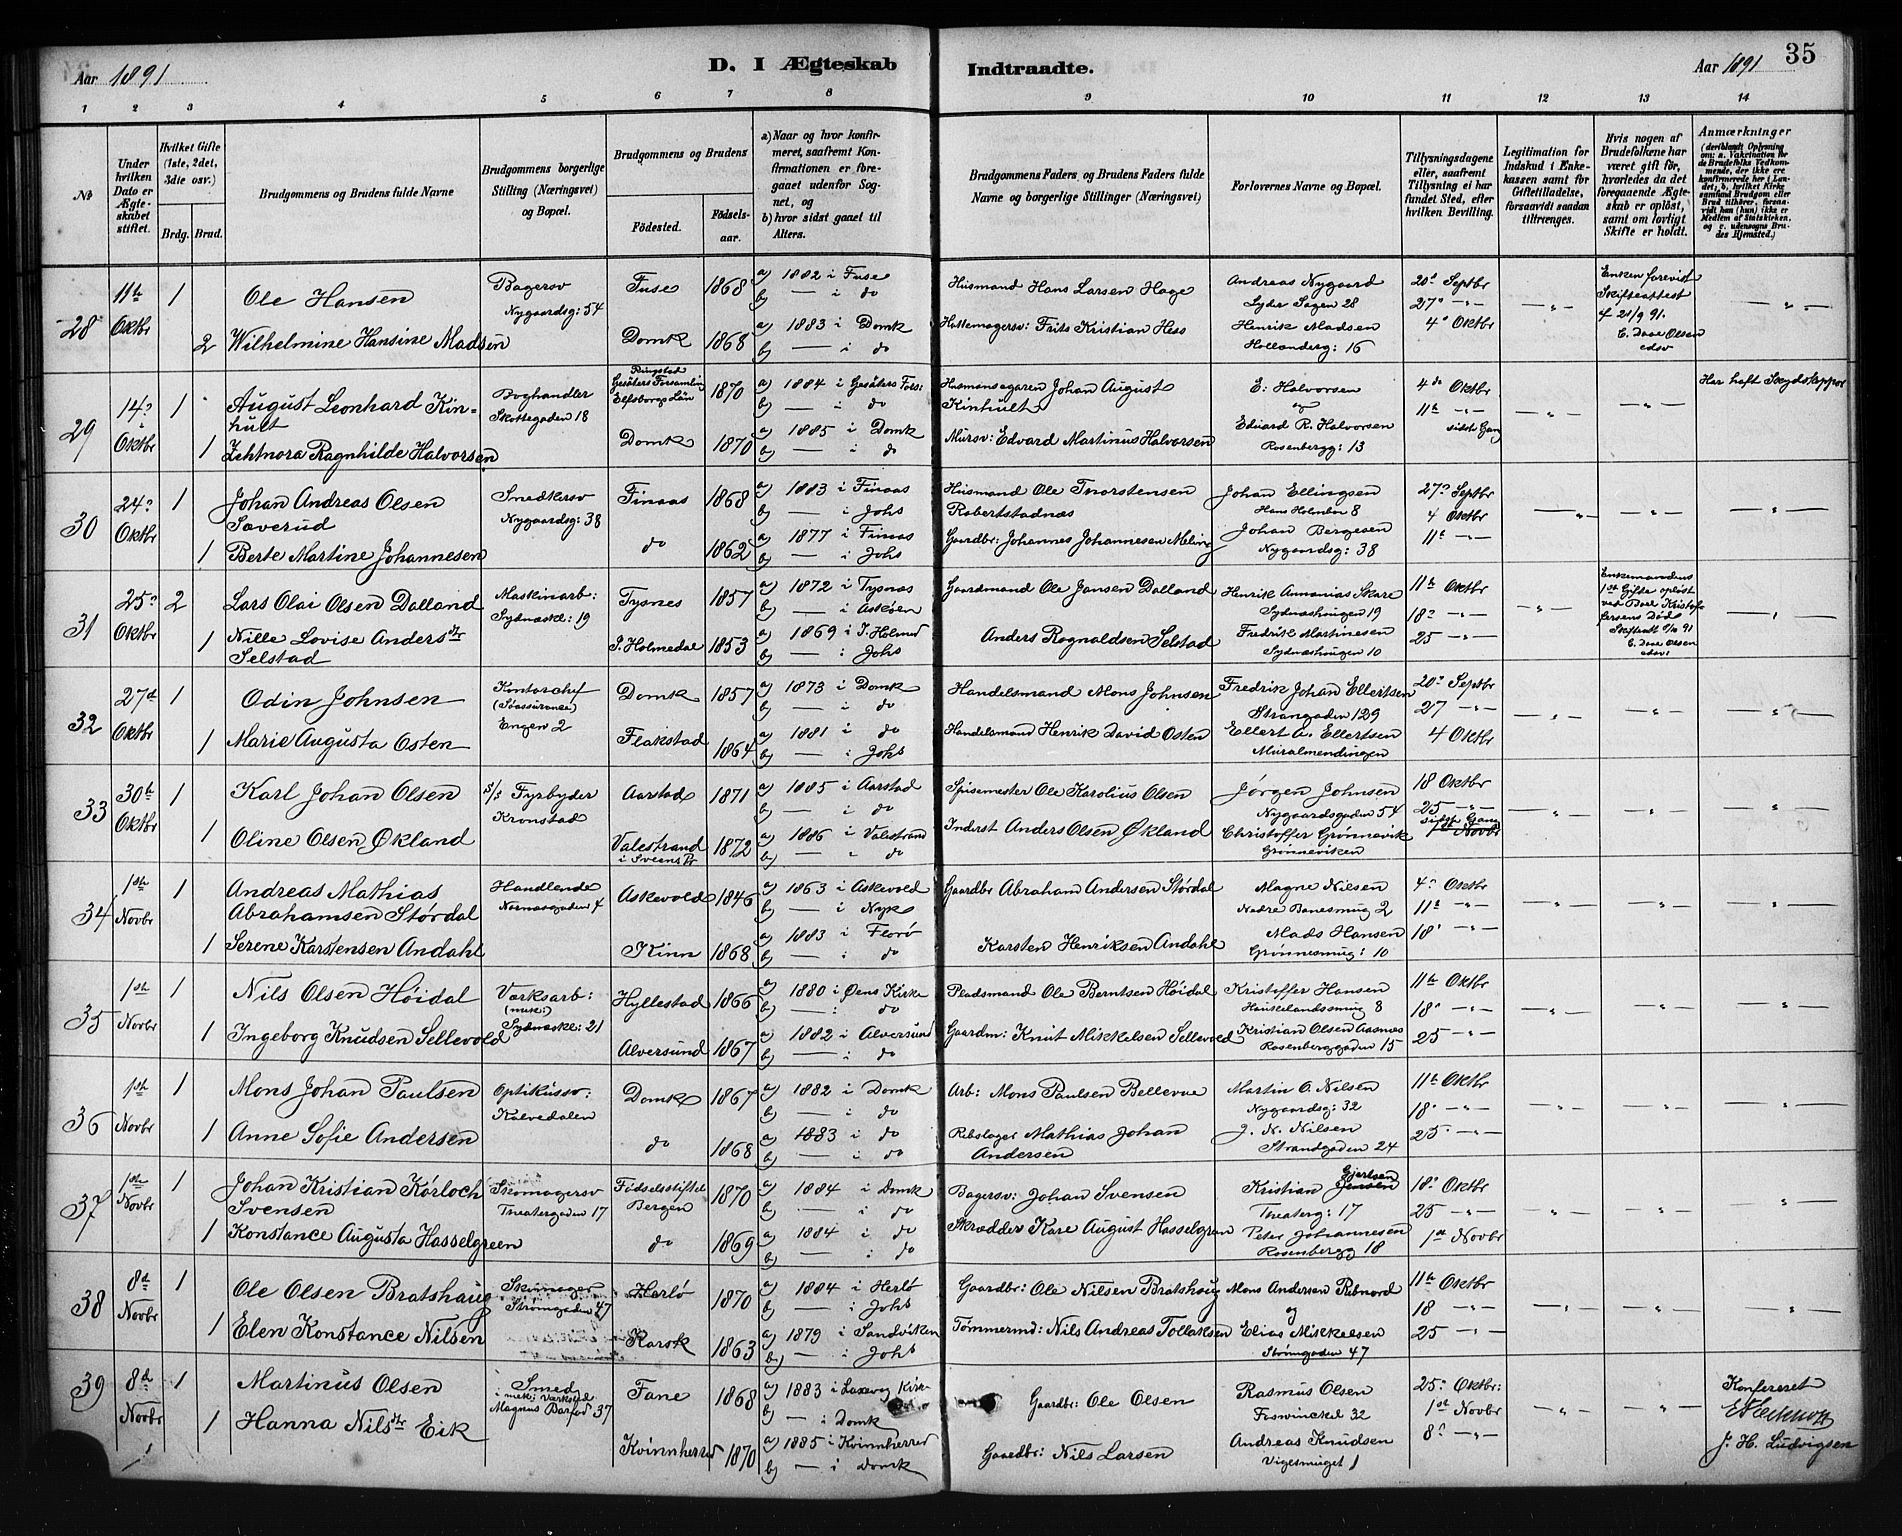 Aar 1891
D. I Ægteskab
Indtraadte.
Aar 1891
35
1 2 3 4 5 6 7 8 9 10 11 12 13 14
No
Under hvilken Dato er Ægteskabet stiftet.
Hvilket Gifte (1ste, 2det, 3die osv.)
Brdg. Brud.
Brudgommens og Brudens fulde Navne
Brudgommens borgerlige Stilling (Næringsvei) og Bopæl.
Brudgommens og Brudens
Fødested.
Fødselsaar.
a) Naar og hvor konfirmeret, saafremt Konfirmationen er foregaaet udenfor Sognet, og
b) hvor sidst gaaet til Alters.
Brudgommens Faders og Brudens Faders fulde Navne og borgerlige Stillinger (Næringsvei)
Forlovernes Navne og Bopæl.
Tillysningsdagene eller, saafremt Tillysning ei har fundet Sted, efter hvilken Bevilling.
Legitimation for Indskud i Enkekassen samt for Giftetilladelse, forsaavidt saadan tiltrænges.
Hvis nogen af Brudefolkene har været gift før, hvorledes da det foregaaende Ægteskab er opløst, samt om lovligt Skifte er holdt.
Anmærkninger (deriblandt Oplysning om: a. Vakcination for de Brudefolks Vedkommende, der ikke ere konfirmerede her i Landet; b. hvilket Kirkesamfund Brudgom eller Brud tilhører, forsaavidt han (hun) ikke er Medlem af Statskirken, og c. udensogns Brudes Hjemsted.)
28
11te Oktbr
1
Ole Hansen
Bagersv
Nygaardsg: 54
Fuse
1868
a) 1882 i Fuse
b) — i do
Husmand Hans Larsen Hage
Andreas Nygaard
Lyder Sagen 28
20de Septbr
27 — " —
2
Wilhelmine Hansine Madsen
Domk
1868
a) 1883 i Domk
b) — i do
Hattemagersv: Frits Kristian Hess
Henrik Madsen
Hollenderg: 16
4de Oktbr
Enken forevist
Skifteattest
af 21/9 91.
E. Daae Olsen
edsv
29
14de Oktbr
1
August Leonhard Kinhult
Boghandler
Skottegaden 18
Ringstad
Gesäters Forsamling
Elfsborgs Län
1870
a) 1884 i Gesäters Fors:
b) — i do
Husmansegaren Johan August
Kinhult
E. Halvorsen
og
4de Oktbr
11te — " —
sidste Gang
Har haft Skydskopper
1
Ragnhilde Halvorsen
Domk
1870
a) 1885 i Domk
b) — i do
Mursv: Edvard Martinus Halvorsen
Eduard R. Halvorsen
Rosenbergg: 13
30
24de Oktbr
1
Johan Andreas Olsen
Saverud
Smedkersv
Nygaardsg: 38
Finaas
1868
a) 1883 i Finaas
b) — i Johs
Husmand Ole Thorstensen
Robertstadnæs
Johan Ellingsen
Hans Holmboe 8
27de Septbr
4 Oktbr
1
Berte Martine Johannesen
do
1862
a) 1877 i Finaas
b) — i Johs
Gaardbr: Johannes Johannesen Meling
Johan Bergesen
Nygaardsg: 38
11te — " —
31
25de Oktbr
2
Lars Olai Olsen Dalland
Maskinarb:
Sydnæskl: 19
Tysnes
1857
a) 1872 i Tysnæs
b) — i Askøen
Gaardmand Ole Jansen Dalland
Henrik Annanias Skare
Sydnæshaugen 19
11te Oktbr
18de — " —
1
Nille Lovise Andersdtr
Selstad
I. Holmedal
1853
a) 1869 i I. Holmed
b) — i Johs
Anders Rognaldsen Selstad
Fredrik Martinesen
Sydnæshaugen 10
25 — " —
Enkemandens
1ste Gifte opløst
ved Boel Kristoffersens Død
E. Daae Olsen
edsv:
32
27de Oktbr
1
Odin Johnsen
Kontorchef
(Søassurance)
Engen 2
Domk
1857
a) 1873 i Domk
b) — i do
Handelsmand Mons Johnsen
Fredrik Johan Ellertsen
Strangaden 129
20de Septbr
27 — " —
1
Marie Augusta Osten
Flakstad
1864
a) 1881 i do
b) — i Johs
Handelsmand Henrik David Osten
Ellert A. Ellertsen
Muralmendingen
4 Oktbr
33
30te Oktbr
1
Karl Johan Olsen
s/s Fyrbyder
Kronstad
Aarstad
1871
a) 1885 i Aarstad
b) — i do
Spisemester Ole Karolius Olsen
Jørgen Johnsen
Nygaardsgaden 54
18 Oktbr
25 — " —
sidste Gang
1
Oline Olsen Økland
Valestrand
i Sveens Pr
1872
a) 1886 i Valestrand
b) — " do
Inderst Anders Olsen Økland
Christoffer Grønnevik
Grønneviken
1ste Novbr
34
1ste Novbr
1
Andreas Mathias
Abrahamsen Størdal
Handlende
Nornesgaden 4
Askevold
1846
a) 1863 i Askevold
b) — i Nyk
Gaardbr Abraham Andersen Størdal
Magne Nilsen
Nedre Banesmug 2
4de Oktbr
11te — " —
1
Serene Karstensen Andahl
Kinn
1868
a) 1883 i Florø
b) — i do
Karsten Henriksen Andahl
Mads Hansen
Grønnesmug: 10
18de — " —
35
1ste Novbr
1
Nils Olsen Høidal
Værksarb:
(mek:)
Sydnæskl: 21
Hyllestad
1866
a) 1880 i Øens Kirke
b) — i do
Pladsmand Ole Berntsen Høidal
Kristoffer Hansen
Haukelandssmug 8
11te Oktbr
18de — " —
1
Ingeborg Knudsen Sellevold
Alversund
1867
a) 1882 i Alversund
b) — i do
Gaardm: Knut Mikkelsen Sellevold
Kristian Olsen Aasnæs
Rosenberggaden 15
25 — " —
36
1ste Novbr
1
Mons Johan Paulsen
Optikussv:
Kalvedalen
Domk
1867
a) 1882 i Domk
b) — i do
Arb: Mons Paulsen Bellevue
Martin O. Nilsen
Nygaardsg: 32
11te Oktbr
18de — " —
1
Anne Sofie Andersen
do
1868
a) 1883 i do
b) — i do
Rebslager Mathias Johan
Andersen
J. N. Nilsen
Strandgaden 24
25de — " —
37
1ste Novbr
1
Johan Kristian Kørloch
Svensen
Skomagersv
Theatergaden 17
Fødselsstiftel
Bergen
1870
a) 1884 i Domk
b) — i do
Bagersv: Johan Svensen
Kristian Jensen Gjertsen
Theaterg: 17
18de Oktbr
25 — " —
1
Konstance Augusta Hasselgreen
do
1869
a) 1884 i do
b) — i do
Skrædder Kare August Hasselgren
Peter Johannesen
Rosenbergg 18
1ste Novbr
38
8de Novbr
1
Ole Olsen Bratshaug
Skomager
Strømgaden 47
Herlø
1870
a) 1884 i Herlø
b) — i Johs
Gaardbr: Ole Nilsen Bratshaug
Mons Andersen Rebnord
og
11te Oktbr
18 — " —
1
Elen Konstance Nilsen
Karsk
1863
a) 1879 i Sandviken
b) — i Johs
Tømmermd: Nils Andreas Tollaksen
Elias Mikkelsen
Strømgaden 47
25 — " —
39
8de Novbr
1
Martinus Olsen
Smed
i mek: Værksted
Magnus Barfod 37
Fane
1868
a) 1883 i Laxevaag Kirke
b) — i Domk
Gaardbr: Ole Olsen
Rasmus Olsen
Fosvinckel 32
25de Oktbr:
1ste Novbr
1
Hanna Nilsdtr Eik
Kvinnherred
1870
a) 1885 i Kvinnherred
b) — i Domk
Gaardbr: Nils Larsen
Andreas Knudsen
Vigesmuget 1
8de — " —
Konfereret
J. H. Ludvigsen